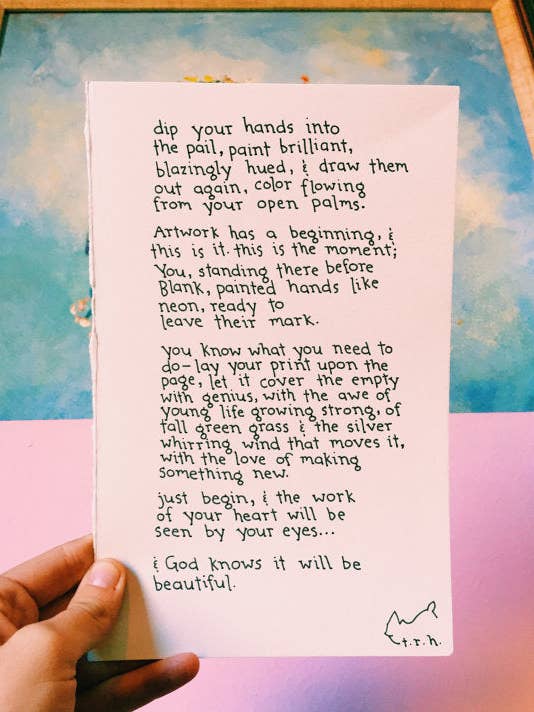 dip your hands into
the pail, paint brilliant,
blazingly hued, & draw them
out again, color flowing
from your open palms.
Artwork has a beginning, &
this is it. this is the moment;
You, standing there before
Blank, painted hands like
neon, ready to
leave their mark.
you know what you need to
do-lay your print upon the
page, let it cover the empty
with genius, with the awe of
young life growing strong, of
tall green grass & the silver
whirring wind that moves it,
with the love of making
something new.
just begin, & the work
of your heart will be
seen by your eyes...
& God knows it will be
beautiful.
t.r.h.